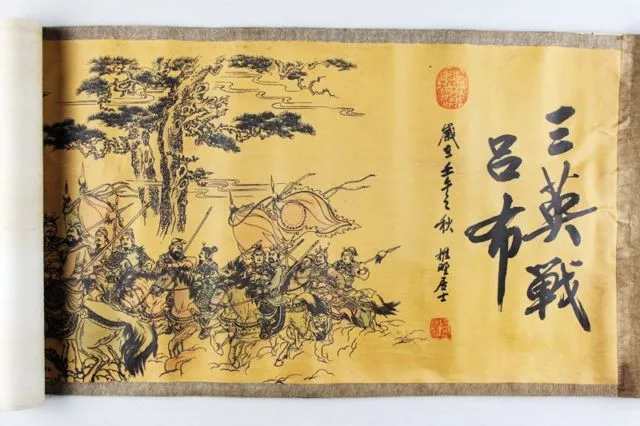 三英戰
吕布
歲在壬午之秋
居士